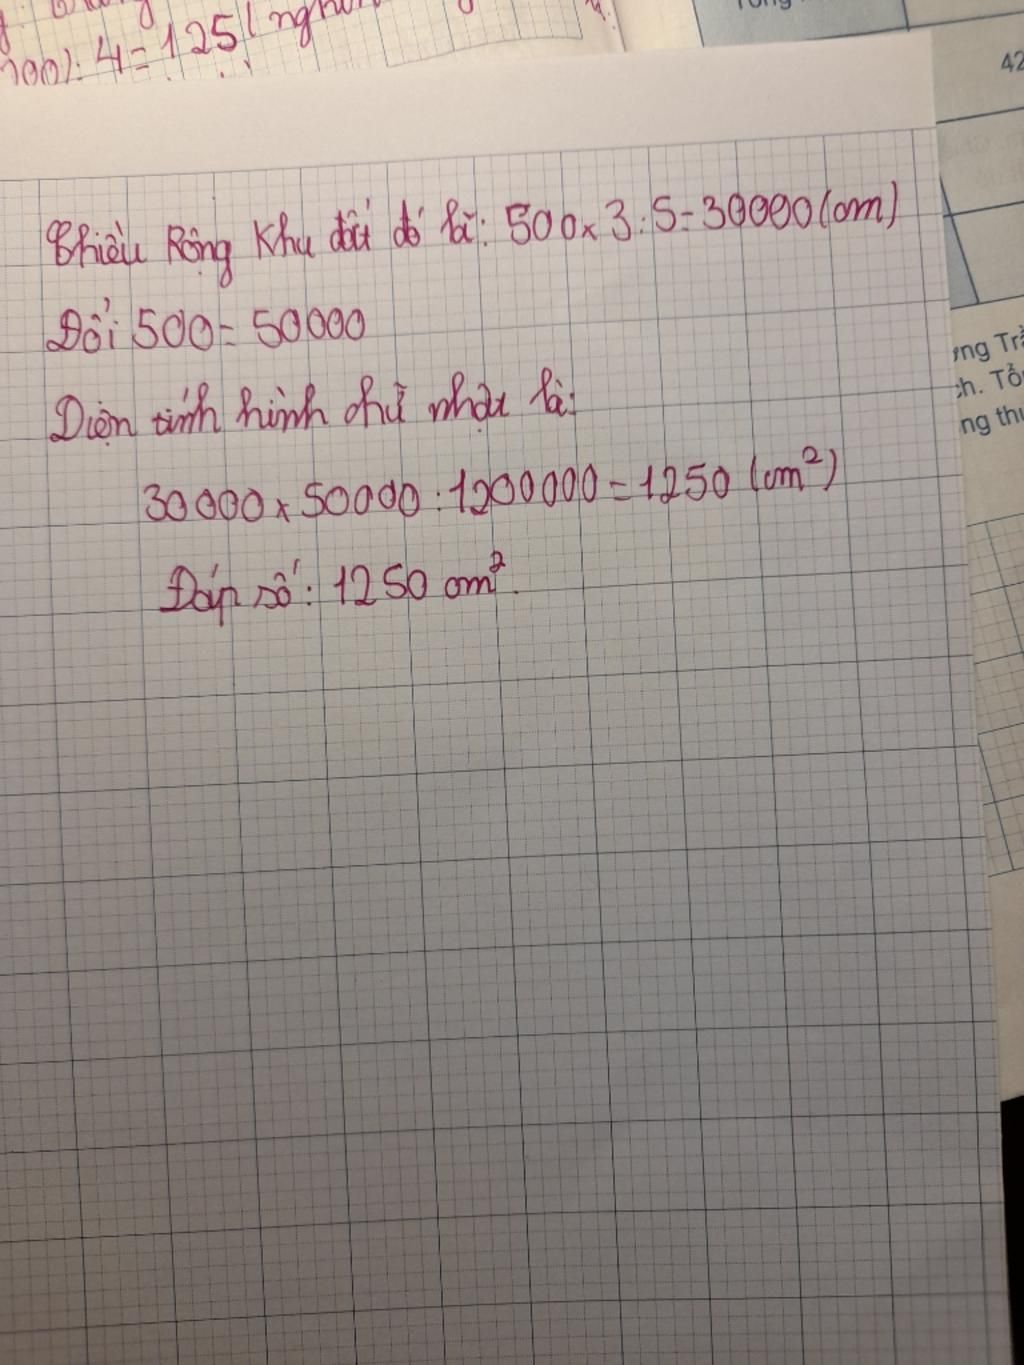 100): 4 = 125 ( nghìn
Chiều Rộng Khu đất đó là: 500 x 3 : 5 = 30000 (cm)
Đổi 500 = 50000
Diện tính hình chữ nhậu là:
30000 x 50000 : 1200000 = 1250 (cm²)
Đáp số: 1250 cm².
42
ng Tr
ch. Tổ
ng th